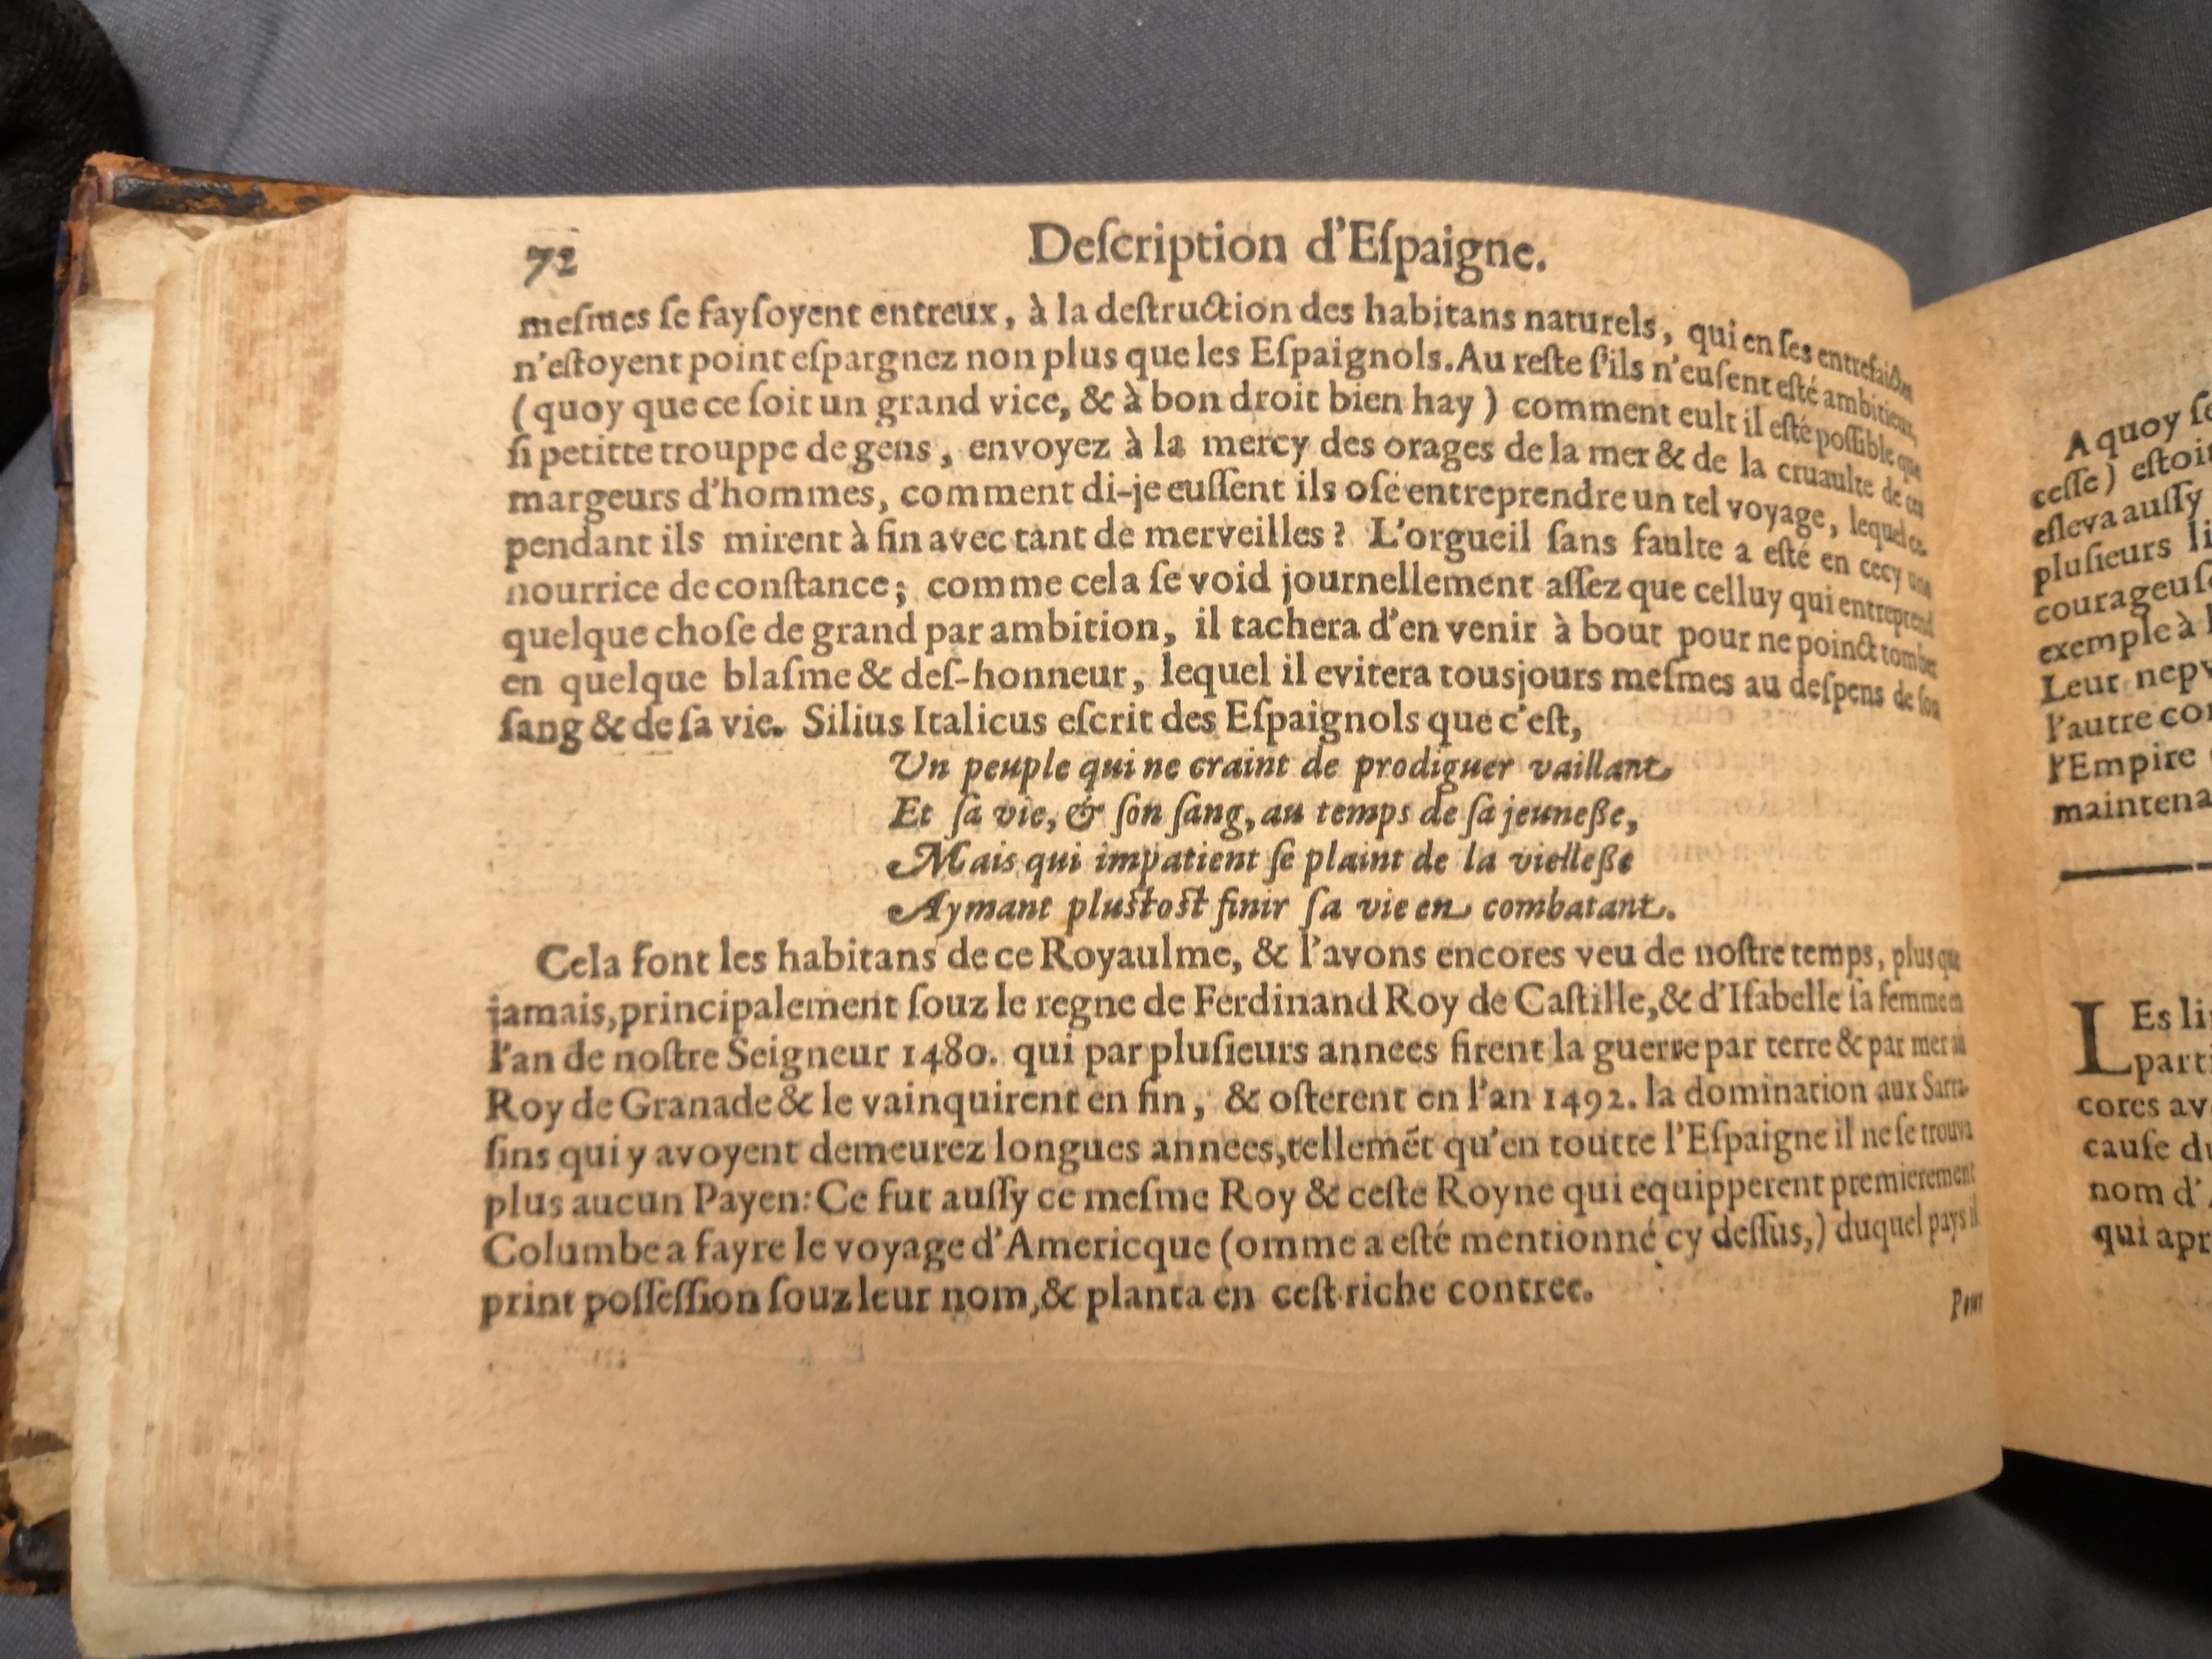 72 Deſcription d'Eſpaigne.
meſmes ſe fayſoyent entreux, à la deſtruction des habitans naturels, qui en ſes entrefaictes
n'eſtoyent point eſpargnez non plus que les Eſpaignols. Au reſte ſ'ils n'euſent eſté ambitieux,
(quoy que ce ſoit un grand vice, & à bon droit bien hay) comment eult il eſté poſſible que
ſi petitte trouppe de gens, envoyez à la mercy des orages de la mer & de la cruaulte de ces
margeurs d'hommes, comment di-je euſſent ils oſé entreprendre un tel voyage, lequel ce-
pendant ils mirent à fin avec tant de merveilles? L'orgueil ſans faulte a eſté en cecy une
nourrice de conſtance; comme cela ſe void journellement aſſez que celluy qui entreprend
quelque choſe de grand par ambition, il tachera d'en venir à bout pour ne poinct tomber
en quelque blaſme & deſ-honneur, lequel il evitera tousjours meſmes au deſpens de ſon
ſang & de ſa vie. Silius Italicus eſcrit des Eſpaignols que c'eſt,
Un peuple qui ne craint de prodiguer vaillant
Et ſa vie, & ſon ſang, au temps de ſa jeuneße,
Mais qui impatient ſe plaint de la vielleße
Aymant pluſtoſt finir ſa vie en combatant.
Cela font les habitans de ce Royaulme, & l'avons encores veu de noſtre temps, plus que
jamais, principalement ſouz le regne de Ferdinand Roy de Caſtille, & d'Iſabelle ſa femme en
l'an de noſtre Seigneur 1480. qui par pluſieurs annees firent la guerre par terre & par mer au
Roy de Granade & le vainquirent en fin, & oſterent en l'an 1492. la domination aux Sarra-
ſins qui y avoyent demeurez longues annees, tellemẽt qu'en toutte l'Eſpaigne il ne ſe trouva
plus aucun Payen: Ce fut auſſy ce meſme Roy & ceſte Royne qui equipperent premierement
Columbe a fayre le voyage d'Americque (omme a eſté mentionné cy deſſus,) duquel pays il
print poſſeſſion ſouz leur nom, & planta en ceſt riche contree.
Pour
A quoy
ceſſe) eſtoit
eſleva auſſy
pluſieurs
exemple à
Leur
l'autre
l'Empire
LEs
cores
cauſe
nom d'
qui